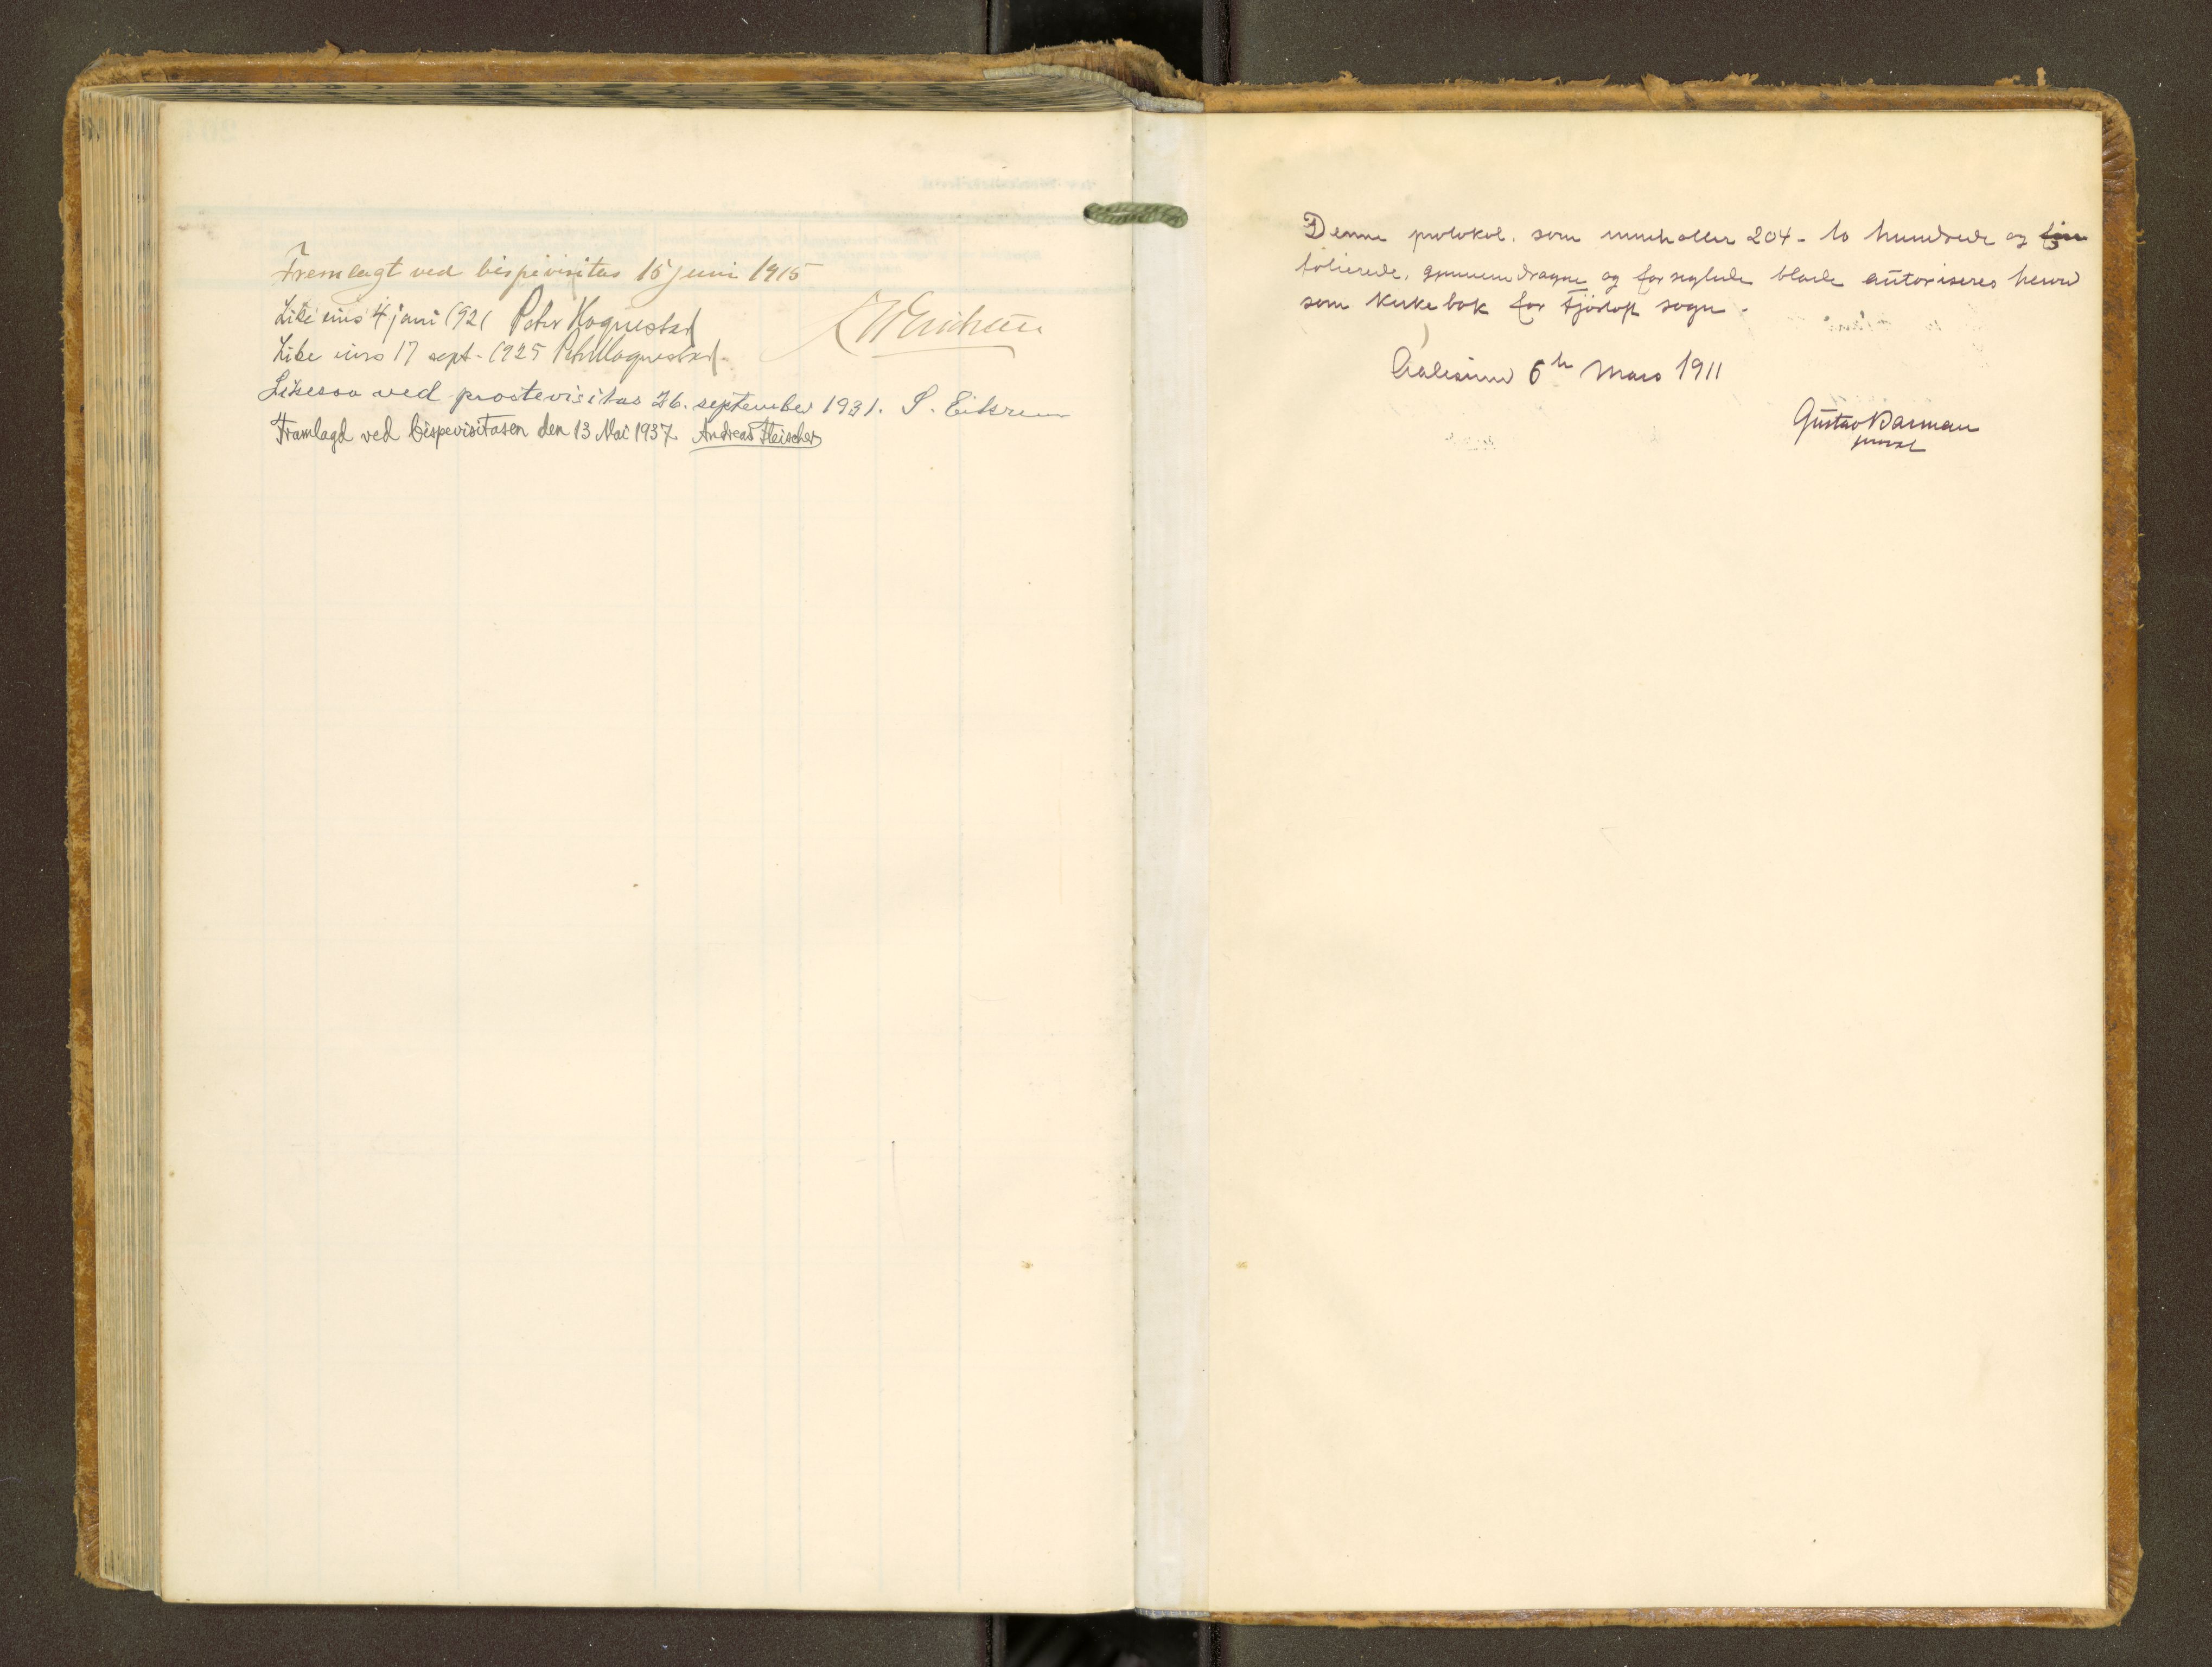 Fremlagt ved bispevisitas 15 juni 1915
Likeens 4 juni 1921 Peter Hognestad
Likeens 17 sept. 1925 Peter Hognestad.
Likesaa ved prostevisitas 26. september 1931. S. Eikrem
Framlagd ved bispevisitasen den 13 Mai 1937. Andreas Fleischer
Denne protokol, som inneholder 204 - to hundrede og fire
folierede, gjennemdragne og forseglede blade autoriseres herved
som kirkebok for Fjørtoft sogn.
Aalesund 6te Mars 1911
Gustav Barman
prost